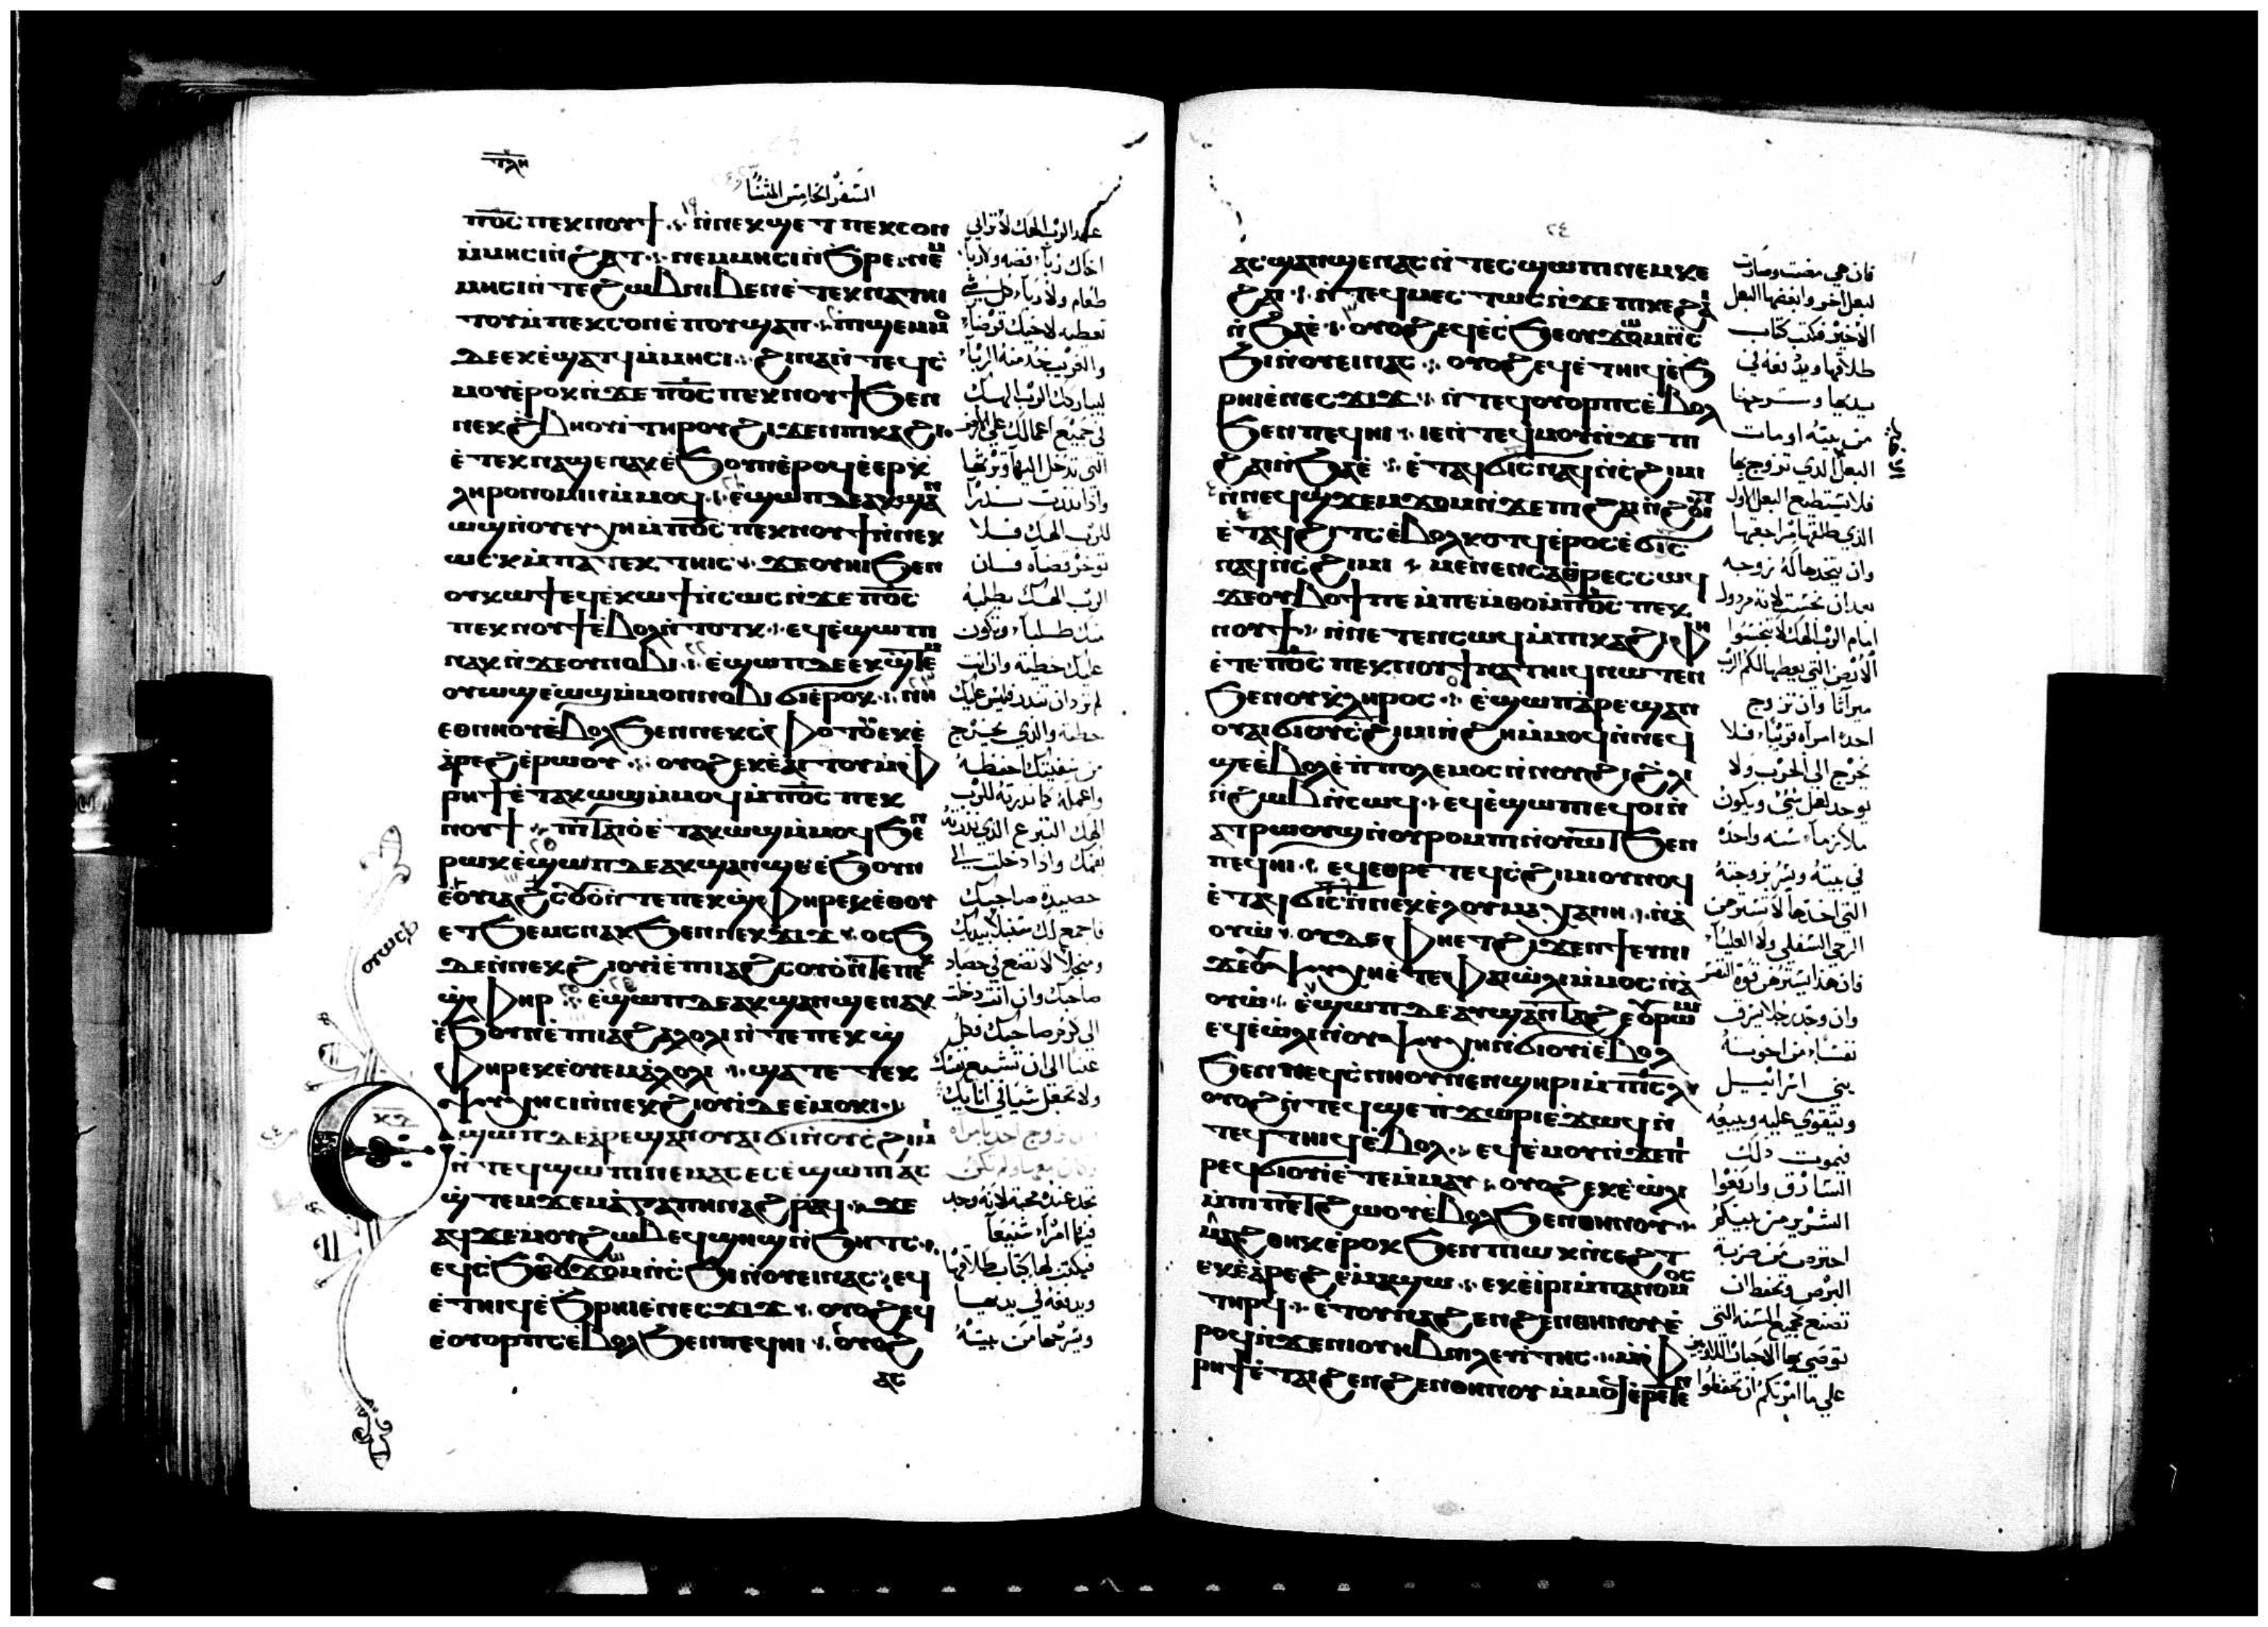 ⲧⲗⲏ
السفر الخامس المثنا
ⲡ̅ⲟ̅ⲥ̅ ⲡⲉⲕⲛⲟⲩϯ ⲛ̀ⲛⲉⲕϣⲉⲧ ⲡⲉⲕⲥⲟⲛ
ⲙ̀ⲙⲏⲥⲓ ⲛ̀ϩⲁⲧ ⲛⲉⲙ ⲙⲏⲥⲓ ⲛ̀ϧⲣⲉ ⲛⲉⲙ
ⲙⲏⲥⲓ ⲛ̀ⲧⲉ ϩⲱⲃ ⲛⲓⲃⲉⲛ ⲉ̀ⲧⲉⲕⲛⲁⲧⲏⲓ
ⲧⲟⲩ ⲙ̀ⲡⲉⲕⲥⲟⲛ ⲉ̀ⲡⲟⲩϣⲁⲡ ⲡⲓϣⲉⲙⲙⲟ
ⲇⲉ ⲉⲕⲉ̀ϣⲁⲧϥ ⲙ̀ⲙⲏⲥⲓ ϩⲓⲛⲁ ⲛ̀ⲧⲉϥⲥ
ⲙⲟⲩ ⲉ̀ⲣⲟⲕ ⲛ̀ϫⲉ ⲡ̅ⲟ̅ⲥ̅ ⲡⲉⲕⲛⲟⲩϯ ϧⲉⲛ
ⲛⲉⲕϩ̀ⲃⲏⲟⲩⲓ ⲧⲏⲣⲟⲩ ϩⲓϫⲉⲛ ⲡⲓⲕⲁϩⲓ
ⲉ̀ⲧⲉⲕⲛⲁϣⲉⲛⲁⲕ ⲉ̀ϧⲟⲩⲛ ⲉ̀ⲣⲟϥ ⲉ̀ⲉⲣⲕ̀
ⲗⲏⲣⲟⲛⲟⲙⲓⲛ ⲙ̀ⲙⲟϥ ⲉϣⲱⲡ ⲇⲉ ⲁⲕϣⲁⲛ
ⲱϣ ⲛ̀ⲟⲩⲉⲩⲭⲏ ⲙ̀ⲡ̅ⲟ̅ⲥ̅ ⲡⲉⲕⲛⲟⲩϯ ⲛ̀ⲛⲉⲕ
ⲱⲥⲕ ⲙ̀ⲡⲁⲧⲉⲕⲧⲏⲓⲥ ϫⲉ ⲟⲩⲏⲓ ϧⲉⲛ
ⲟⲩⲕⲱϯ ⲉϥⲉ̀ⲕⲱϯ ⲛ̀ⲥⲱⲥ ⲛ̀ϫⲉ ⲡ̅ⲟ̅ⲥ̅
ⲡⲉⲕⲛⲟⲩϯ ⲉ̀ⲃⲟⲗ ⲛ̀ⲧⲟⲧⲕ ⲉϥⲉ̀ϣⲱⲡⲓ
ⲛⲁⲕ ⲛ̀ϫⲉ ⲟⲩⲛⲟⲃⲓ ⲉ̀ϣⲱⲡ ⲇⲉ ⲉⲕϣⲧⲉⲙ
ⲟⲩⲱϣ ⲉ̀ⲱϣ ⲙ̀ⲙⲟⲛ ⲛⲟⲃⲓ ϭⲓ ⲉ̀ⲣⲟⲕ ⲛⲏ
ⲉⲑⲛⲏⲟⲩ ⲉ̀ⲃⲟⲗ ϧⲉⲛ ⲛⲉⲕⲥⲫⲟⲧⲟⲩ ⲉⲕⲉ̀
ⲁ̀ⲣⲉϩ ⲉ̀ⲣⲱⲟⲩ ⲟⲩⲟϩ ⲉⲕⲉ̀ⲁⲓⲧⲟⲩ ⲙ̀ⲫ
ⲣⲏϯ ⲉ̀ⲧⲁⲕⲱϣ ⲙ̀ⲙⲟϥ ⲙ̀ⲡ̅ⲟ̅ⲥ̅ ⲡⲉⲕ
ⲛⲟⲩϯ ⲡⲓⲧⲁⲓⲟ ⲉ̀ⲧⲁⲕⲱϣ ⲙ̀ⲙⲟϥ ϧⲉⲛ
ⲣⲱⲕ ⲉ̀ϣⲱⲡ ⲇⲉ ⲁⲕϣⲁⲛϣⲉ ⲉ̀ϧⲟⲩⲛ
ⲉ̀ⲟⲩⲓⲁϩⲥⲟⲩⲟ ⲛ̀ⲧⲉ ⲡⲉⲕϣ̀ⲫⲏⲣ ⲉⲕⲉ̀ⲑⲟⲩ
ⲉⲧ ϧⲉⲙⲥ ⲛⲁⲕ ϧⲉⲛ ⲛⲉⲕϫⲓϫ ⲟⲥϧ
ⲇⲉ ⲛ̀ⲛⲉⲕϩⲓⲟⲩⲓ ⲉ̀ⲡⲓⲓⲁϩⲥⲟⲩⲟ ⲛ̀ⲧⲉ ⲡⲉⲕ
ϣ̀ⲫⲏⲣ ⲉ̀ϣⲱⲡ ⲇⲉ ⲁⲕϣⲁⲛϣⲉⲛⲁⲕ
ⲉ̀ϧⲟⲩⲛ ⲉ̀ⲡⲓⲓⲁϩⲁⲗⲟⲗⲓ ⲛ̀ⲧⲉ ⲡⲉⲕϣ̀
ⲫⲏⲣ ⲉⲕⲉ̀ⲟⲩⲉⲙ ⲁ̀ⲗⲟⲗⲓ ϣⲁⲧⲉ ⲧⲉⲕ
ⲯⲩⲭⲏ ⲥⲓ ⲛ̀ⲛⲉⲕϩⲓⲟⲩⲓ ⲇⲉ ⲉ̀ⲙⲟⲕⲓ
ⲉϣⲱⲡ ⲇⲉ ⲁ̀ⲣⲉϣⲁⲛ ⲟⲩⲁⲓ ϭⲓ ⲛ̀ⲟⲩⲥϩⲓⲙⲓ
ⲛ̀ⲧⲉϥϣⲱⲡⲓ ⲛⲉⲙⲁⲥ ⲉⲥⲉ̀ϣⲱⲡⲓ ⲁⲥ
ϣ̀ⲧⲉⲙϫⲉⲙ ⲁ̀ⲅⲁⲡⲏ ⲛⲁϩⲣⲁϥ ϫⲉ
ⲁϥϫⲉⲙ ⲟⲩϩⲱⲃ ⲉϥϣⲏϣ ⲛ̀ϧⲏⲧⲥ
ⲉϥⲥϧⲉ ⲟⲩϫⲱⲙ ⲛ̀ⲥϧⲓ ⲛ̀ⲟⲩⲉⲓ ⲛⲁⲥ ⲉϥ
ⲉ̀ⲧⲏⲓϥ ⲉ̀ϧⲣⲏⲓ ⲉ̀ⲛⲉⲥϫⲓϫ ⲟⲩⲟϩ ⲉϥ
ⲉ̀ⲟⲩⲟⲣⲡⲥ ⲉ̀ⲃⲟⲗ ϧⲉⲛ ⲡⲉϥⲏⲓ ⲟⲩⲟϩ
ⲁⲥ
عند الرب الهك لا ترابي
اخاك ربا فضه ولا ربا
طعام ولا ربا كل شي
تعطيه لاخيك قرضا
والغريب خذ منه الربا
ليباركك الرب الهك
في جميع اعمالك علي الارض
التي تدخل اليها وترثها
واذا نذرت نذرا
للرب الهك فلا
توخر قضاه فان
الرب الهك يطلبه
منك طلبا وتكون
عليك خطية وان انت
لم ترد ان تنذر فليس عليك
خطية والذي يخرج
من شفتيك احفظه
واعمله كما نذرته للرب
الهك التبرع الذي نذرته
بفمك واذا دخلت الي
حصيدة صاحبك
فاجمع لك سنبلا بيديك
ومنجلا لا تضع في حصاد
صاحبك وان انت دخلت
الى كرم صاحبك فكل
عنبا الى ان تشبع نفسك
ولا تجعل شيا في انايك
تجد عنده محبة لانه وجد
فيها امرا شنيعا
فيكتب لها كتاب طلاقها
ويدفعه في يديها
ويسرحها من بيته
٢٤
ⲁⲥϣⲁⲛϣⲉⲛⲁⲥ ⲛ̀ⲧⲉⲥϣⲱⲡⲓ ⲛⲉⲙ ⲕⲉ
ϩⲁⲓ ⲛ̀ⲧⲉϥⲙⲉⲥⲧⲱⲥ ⲛ̀ϫⲉ ⲡⲓⲕⲉϩⲁⲓ
ⲛ̀ϧⲁⲉ̀ ⲟⲩⲟϩ ⲉϥⲉ̀ⲥϧⲉ ⲟⲩϫⲱⲙ ⲛ̀ⲥ
ϧⲓ ⲛ̀ⲟⲩⲉⲓ ⲛⲁⲥ ⲟⲩⲟϩ ⲉϥⲉ̀ⲧⲏⲓϥ ⲉ̀ϧ
ⲣⲏⲓ ⲉ̀ⲛⲉⲥϫⲓϫ ⲛ̀ⲧⲉϥⲟⲩⲟⲣⲡⲥ ⲉ̀ⲃⲟⲗ
ϧⲉⲛ ⲡⲉϥⲏⲓ ⲓⲉ ⲛ̀ⲧⲉϥⲙⲟⲩ ⲛ̀ϫⲉ ⲡⲓ
ϩⲁⲓ ⲛ̀ϧⲁⲉ̀ ⲉ̀ⲧⲁϥϭⲓⲧⲥ ⲛⲁϥ ⲛ̀ⲥϩⲓⲙⲓ
ⲛ̀ⲛⲉϥϣϫⲉⲙϫⲟⲙ ⲛ̀ϫⲉ ⲡⲓϩⲁⲓ ⲛ̀ϩⲟⲩⲓⲧ
ⲉ̀ⲧⲁϥϩⲓⲧⲥ ⲉ̀ⲃⲟⲗ ⲕⲟⲧϥ ⲉ̀ⲣⲟⲥ ⲉ̀ϭⲓⲧⲥ
ⲛⲁϥ ⲛ̀ⲥϩⲓⲙⲓ ⲙⲉⲛⲉⲛⲥⲁ ⲑⲣⲉⲥⲥⲱϥ
ϫⲉ ⲟⲩⲃⲟϯ ⲡⲉ ⲙ̀ⲡⲉⲙⲑⲟ ⲙ̀ⲡ̅ⲟ̅ⲥ̅ ⲡⲉⲕ
ⲛⲟⲩϯ ⲛ̀ⲛⲉⲧⲉⲛⲥⲱϥ ⲙ̀ⲡⲓⲕⲁϩⲓ ⲫⲏ
ⲉ̀ⲧⲉ ⲡ̅ⲟ̅ⲥ̅ ⲡⲉⲕⲛⲟⲩϯ ⲛⲁⲧⲏⲓϥ ⲛⲱⲧⲉⲛ
ϧⲉⲛ ⲟⲩⲕ̀ⲗⲏⲣⲟⲥ ⲉ̀ϣⲱⲡ ⲁ̀ⲣⲉϣⲁⲛ
ⲟⲩⲁⲓ ϭⲓ ⲟⲩⲥϩⲓⲙⲓ ⲛ̀ϩⲏ ⲙ̀ⲙⲟϥ ⲛ̀ⲛⲉϥ
ϣⲉ ⲉ̀ⲃⲟⲗ ⲉ̀ⲡⲡⲟⲗⲉⲙⲟⲥ ⲛ̀ⲛⲟⲩϩⲓ ϩ̀ⲗⲓ
ⲛ̀ϩⲱⲃ ⲛ̀ⲥⲱϥ ⲉϥⲉ̀ϣⲱⲡⲓ ⲉϥⲟⲓ ⲛ̀
ⲁⲧⲣⲱⲟⲩϣ ⲛ̀ⲟⲩⲣⲟⲙⲡⲓ ⲛ̀ⲟⲩⲱⲧ ϧⲉⲛ
ⲡⲉϥⲏⲓ ⲉϥⲉⲑⲣⲉ ⲧⲉϥⲥϩⲓⲙⲓ ⲟⲩⲛⲟϥ
ⲉ̀ⲧⲁϥϭⲓⲧⲥ ⲛ̀ⲛⲉⲕⲉ̀ⲗ ⲟⲩⲙⲁⲭⲁⲛⲏ ⲛ̀ⲁ
ⲟⲩⲱ ⲟⲩⲇⲉ ⲫⲏ ⲉⲧϩⲓϫⲉⲛ ϯⲉⲙⲛⲓ
ϫⲉ ⲟⲩⲯⲩⲭⲏ ⲉ̀ⲧⲉ ⲫⲁⲓ ⲱ̀ⲗⲓ ⲙ̀ⲙⲟⲥ ⲛ̀ⲁ
ⲟⲩⲱ ⲉ̀ϣⲱⲡ ⲇⲉ ⲁⲩϣⲁⲛⲧⲁϩⲉ ⲟⲩⲣⲱⲙⲓ
ⲉϥⲉ̀ⲱ̀ⲗⲓ ⲛ̀ⲟⲩⲯⲩⲭⲏ ⲛ̀ϭⲓⲟⲩⲓ ⲉ̀ⲃⲟⲗ
ϧⲉⲛ ⲛⲉϥⲥⲛⲏⲟⲩ ⲛⲉⲛϣⲏⲣⲓ ⲙ̀ⲡⲓⲥⲗ
ⲟⲩⲟϩ ⲛ̀ⲧⲉϥϣⲉⲧ ϫⲱⲣⲓ ⲉ̀ϫⲱϥ ⲛ̀
ⲧⲉϥⲧⲏⲓϥ ⲉ̀ⲃⲟⲗ ⲉϥⲉ̀ⲙⲟⲩ ⲛ̀ϫⲉ ⲡⲓ
ⲣⲉϥϭⲓⲟⲩⲓ ⲉ̀ⲧⲉⲙⲙⲁⲩ ⲟⲩⲟϩ ⲉⲕⲉ̀ⲱ̀ⲗⲓ
ⲙ̀ⲡⲓⲡⲉⲧϩⲱⲟⲩ ⲉ̀ⲃⲟⲗ ϧⲉⲛ ⲑⲏⲛⲟⲩ
ⲙⲁϩⲑⲏⲕ ⲉ̀ⲣⲟⲕ ϧⲉⲛ ⲡⲓϣⲱϫ ⲛ̀ⲥⲉϩⲧ
ⲉⲕⲉ̀ⲁ̀ⲣⲉϩ ⲉ̀ⲙⲁϣⲱ ⲉⲕⲉ̀ⲓ̀ⲣⲓ ⲙ̀ⲡⲁⲓⲛⲟⲙⲟⲥ
ⲧⲏⲣϥ ⲉ̀ⲧⲟⲩⲛⲁϩⲉⲛϩⲉⲛ ⲑⲏⲛⲟⲩ ⲉ̀
ⲣⲟϥ ⲛ̀ϫⲉ ⲛⲓⲟⲩⲏⲃ ⲛ̀ⲗⲉⲩⲓⲧⲏⲥ ⲙ̀ⲫ
ⲣⲏϯ ⲉ̀ⲧⲁⲓϩⲉⲛϩⲉⲛ ⲑⲏⲛⲟⲩ ⲙ̀ⲙⲟϥ ⲉ̀ⲣⲉⲧⲉⲛ
فان هي مضت وصارت
لبعل اخر وابغضها البعل
الاخير فكتب كتاب
طلاقها ويدفعه في
يديها وسرحها
من بيته او مات
البعل الذي تزوج بها
فلا يستطيع البعل الاول
الذي طلقها مراجعتها
وان يتخذها له زوجه
بعد ان تنجست لانه مردول
امام الرب الهك لا تنجسوا
الارض التي يعطيها لكم الرب
ميراثا وان تزوج
احد امراه قريبا فلا
يخرج الي الحرب ولا
يوخد لعل شي ويكون
ملازما سنه واحده
في بيته ويسر بزوجته
التي اخذها لا تسترهن
الرحي السفلي ولا العليا
فان هذا يسترهن قوة النفس
وان وجد رجلا يسرق
نفسا من اخوته
بني اسراييل
ويتقوي عليه ويبيعه
فيموت ذلك
السارق وارفعوا
الشرير من بينكم
احترص من ضربة
البرص وتحفظ ان
تصنع جميع السنه التي
توصي بها الاحبار اللاويين
علي ما امرتكم ان تحفظوا